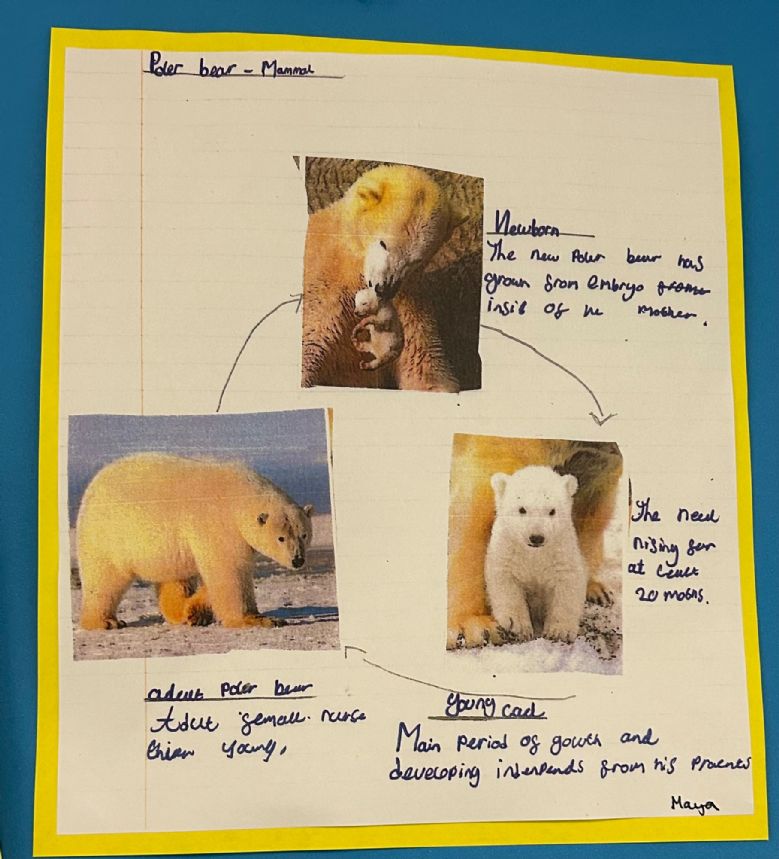 Poler bear - Mammal
Newborn
The new Poler bear has
grown from embryo frome
insib of he mother.
The need
nising for
at leult
20 moths.
adeut Poler bear
Adult femall nurse
thier young.
Young cad
Main Period of gowth and
developing intenpends from his Praents
Maya